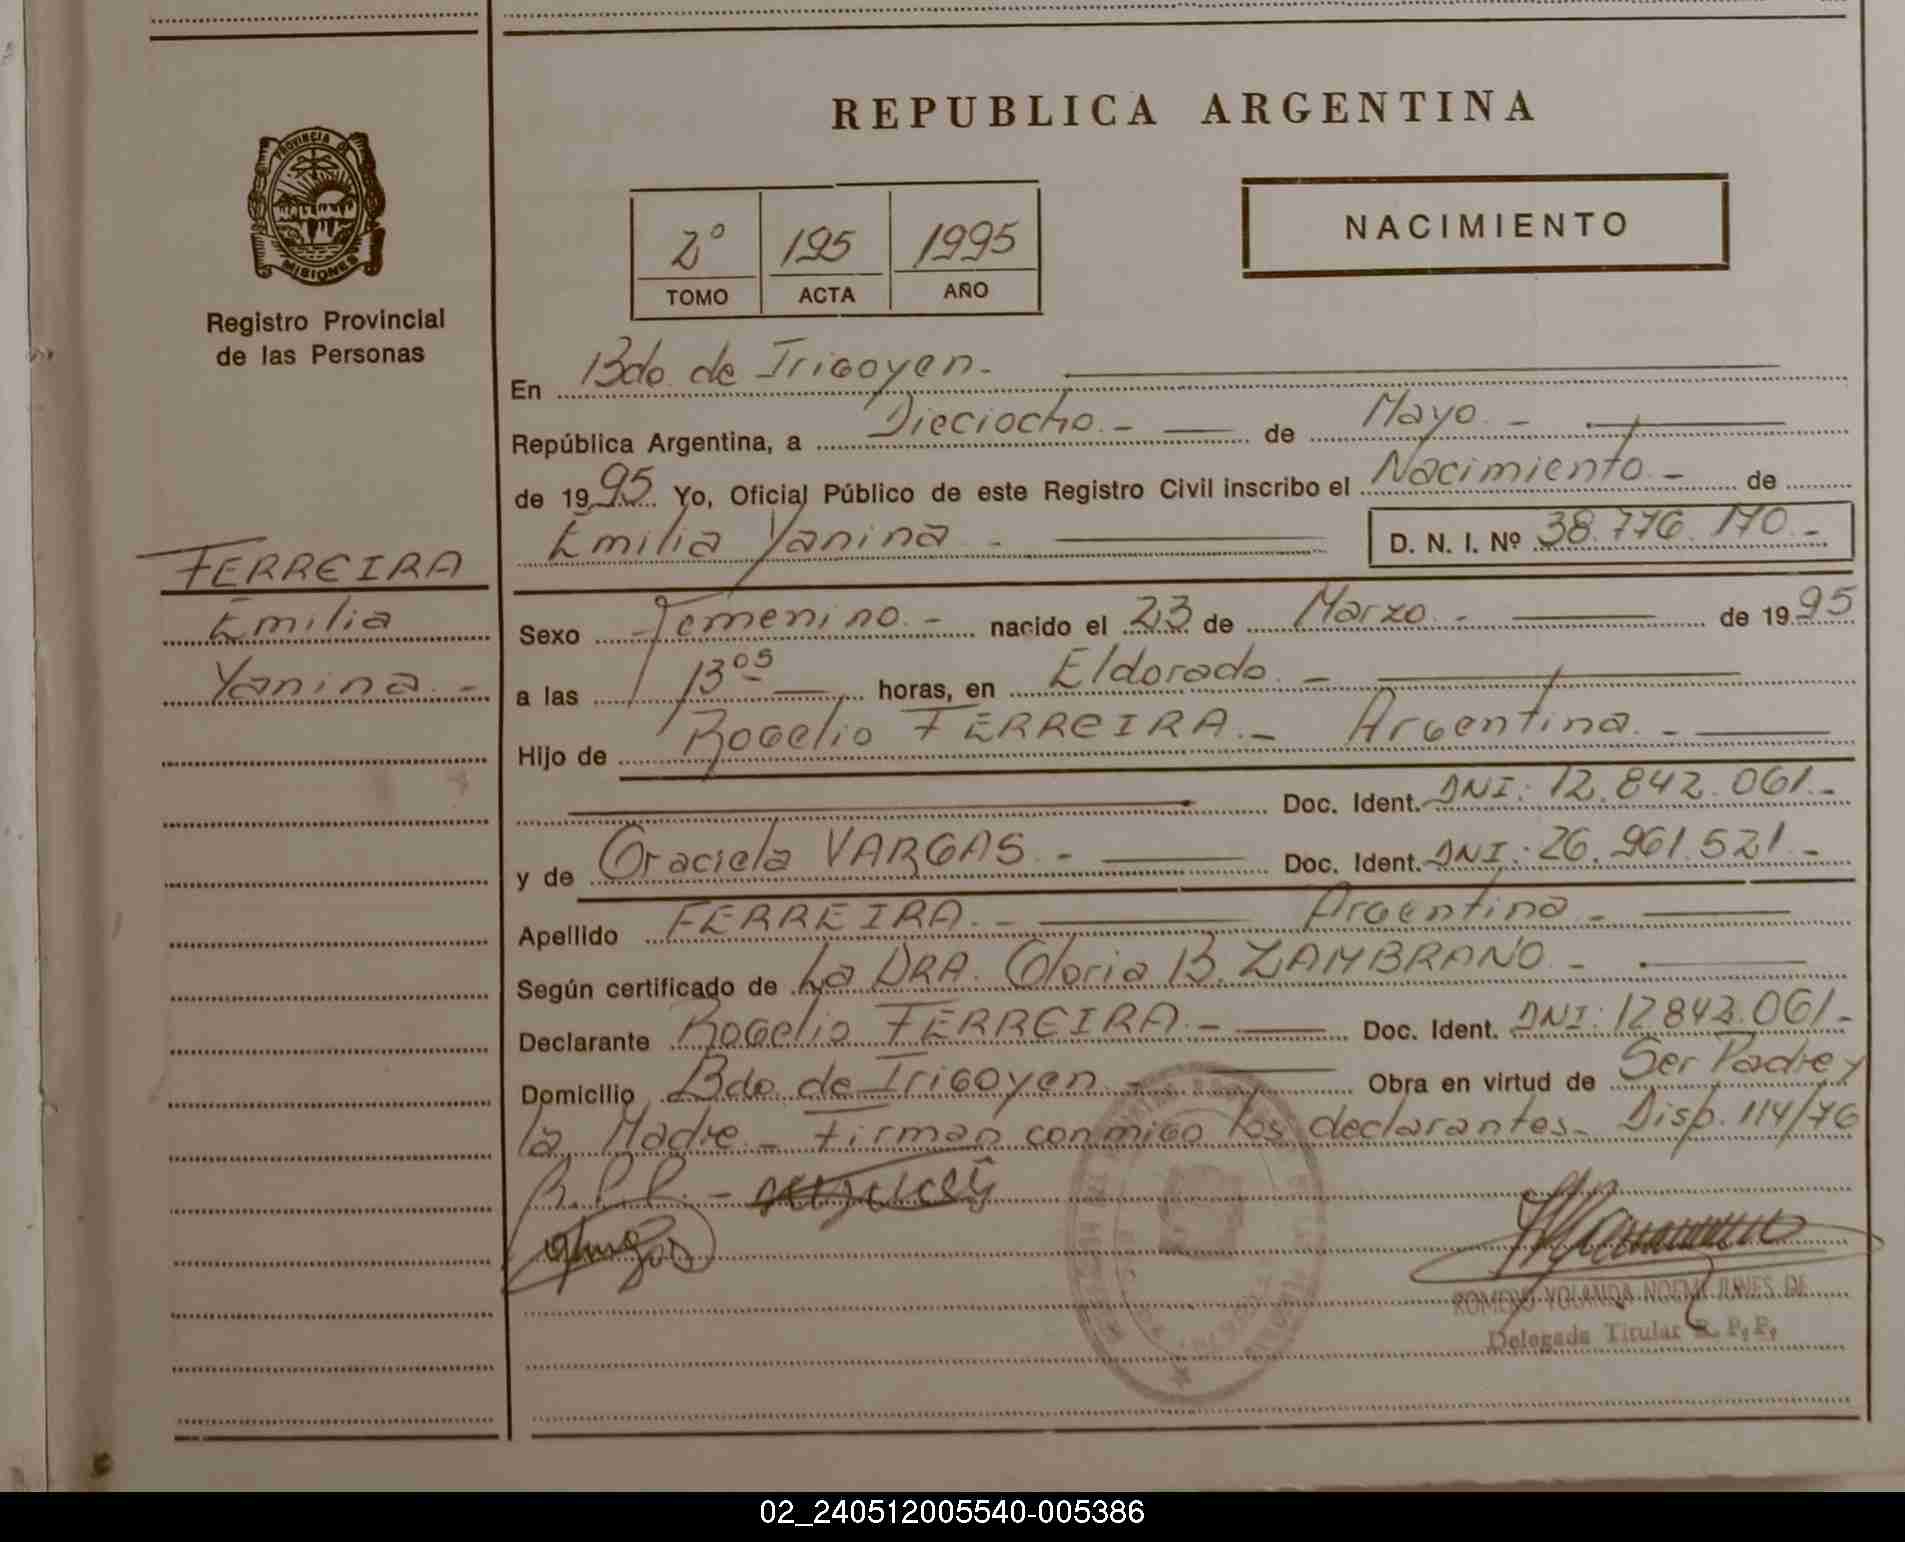 REPUBLICA ARGENTINA
PROVINCIA DE
MISIONES
Registro Provincial
de las Personas
2º 195 1995
TOMO ACTA AÑO
NACIMIENTO
En Bdo. de Irigoyen.-
República Argentina, a Dieciocho.- de Mayo.-
de 1995 Yo, Oficial Público de este Registro Civil inscribo el Nacimiento.- de
Emilia Yanina - D. N. I. Nº 38.776.170.-
FERREIRA
Emilia
Yanina.-
Sexo Femenino.- nacido el 23 de Marzo.- de 1995
a las 13⁰⁵ horas, en Eldorado.-
Hijo de Rogelio FERREIRA.- Argentina.-
Doc. Ident. DNI: 12.842.061.-
y de Graciela VARGAS.- Doc. Ident. DNI: 26.961.521.-
Apellido FERREIRA.- Argentina.-
Según certificado de La DRA. Gloria B. ZAMBRANO.-
Declarante Rogelio FERREIRA.- Doc. Ident. DNI: 12842.061.-
Domicilio Bdo. de Irigoyen.- Obra en virtud de Ser Padre y
la Madre.- Firman conmigo los declarantes.- Disp. 114/76
R.P.P.-
ROMERO YOLANDA NOEMI JUNES DE
Delegada Titular R. P. P.
02_240512005540-005386